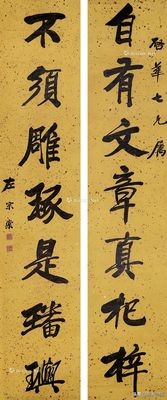 啟華七兄屬
自有文章真杞梓
不須雕琢是璠璵
左宗棠